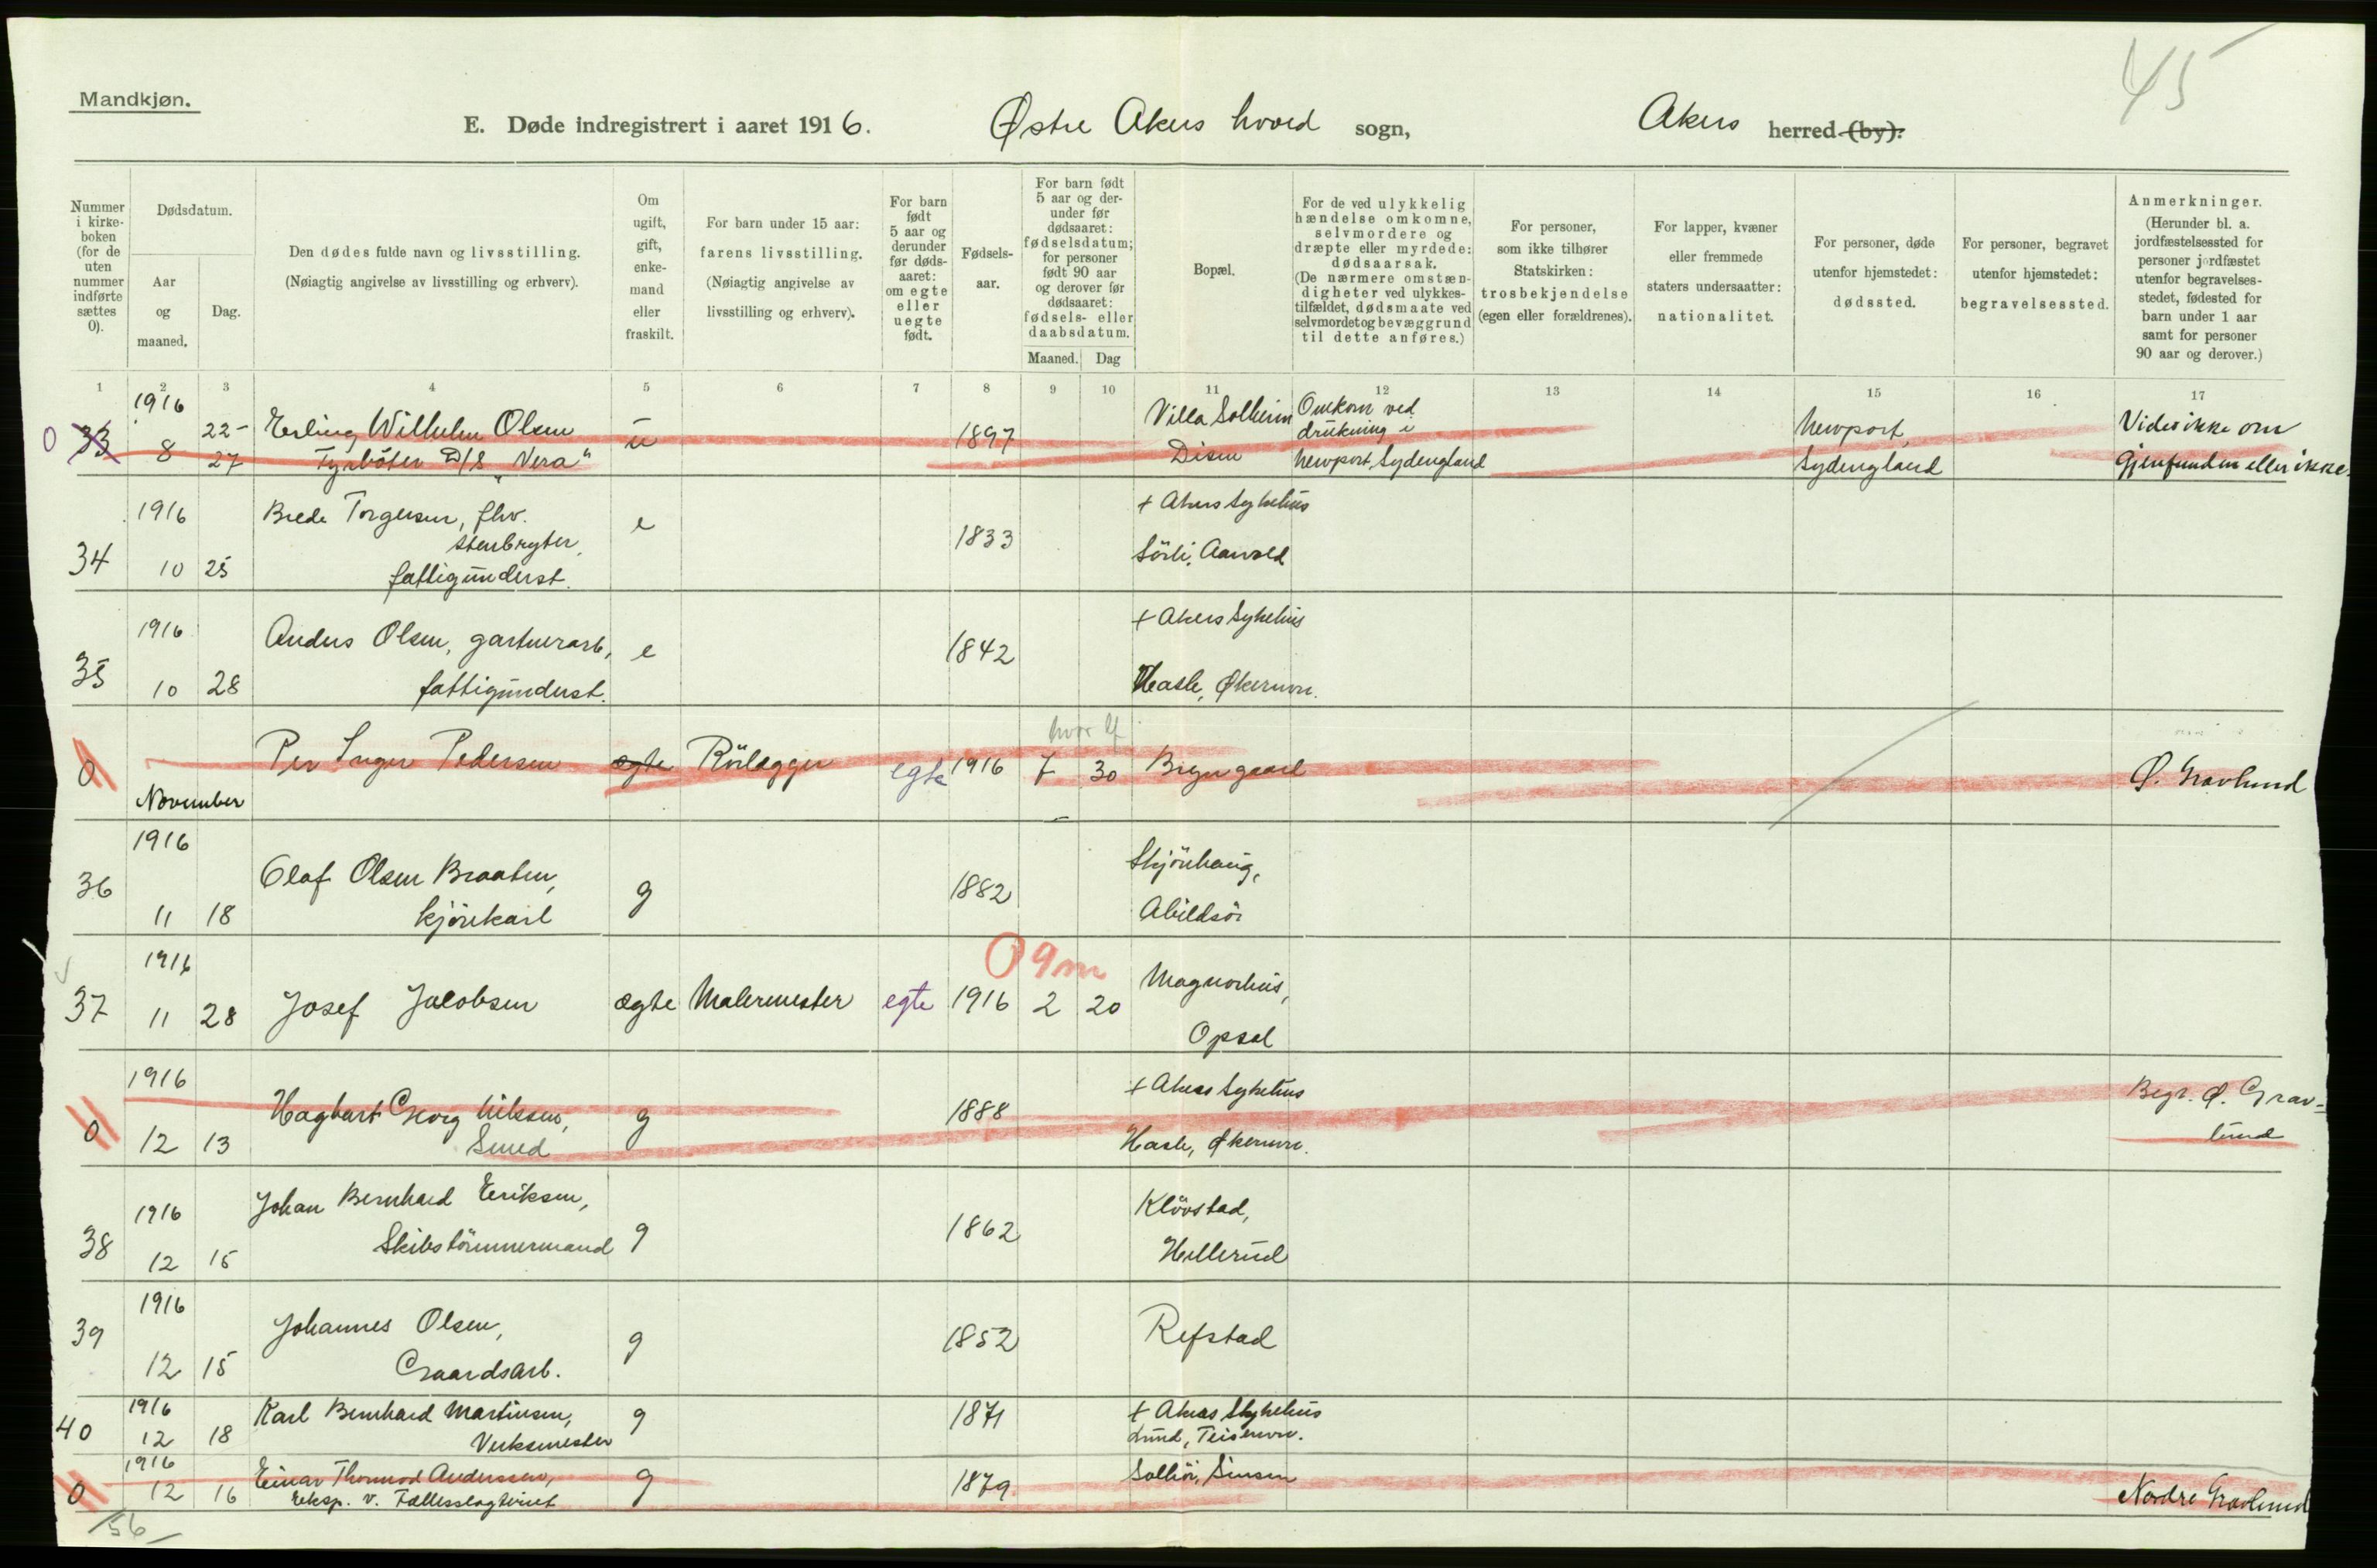 45
Mandkjøn.
E. Døde indregistrert i aaret 1916. Østre Akers hoved sogn, Akers herred (by).
Nummer i kirke-boken (for de uten nummer indførte sættes 0).
Dødsdatum.
Aar og maaned.
Dag.
Den dødes fulde navn og livsstilling.
(Nøiagtig angivelse av livsstilling og erhverv).
Om ugift, gift, enke-mand eller fraskilt.
For barn under 15 aar: farens livsstilling.
(Nøiagtig angivelse av livsstilling og erhverv).
For barn født 5 aar og derunder før døds-aaret: om egte eller uegte født.
Fødsels-aar.
For barn født 5 aar og der-under før dødsaaret: fødselsdatum; for personer født 90 aar og derover før dødsaaret: fødsels- eller daabsdatum.
Maaned. Dag
Bopæl.
For de ved ulykkelig hændelse omkomne, selvmordere og dræpte eller myrdede: dødsaarsak.
(De nærmere omstæn-digheter ved ulykkes-tilfældet, dødsmaate ved selvmordet og bevæggrund til dette anføres.)
For personer, som ikke tilhører Statskirken: trosbekjendelse (egen eller forældrenes).
For lapper, kvæner eller fremmede staters undersaatter: nationalitet.
For personer, døde utenfor hjemstedet: dødssted.
For personer, begravet utenfor hjemstedet: begravelsessted.
Anmerkninger.
(Herunder bl. a. jordfæstelsessted for personer jordfæstet utenfor begravelses-stedet, fødested for barn under 1 aar samt for personer 90 aar og derover.)
1 2 3 4 5 6 7 8 9 10 11 12 13 14 15 16 17
1916 Villa Solheim Omkom ved
0 33 8 22- Erling Wilhelm Olsen u 1897 drukning i Newport, Vides ikke om
27 Fyrböter D/S "Vera" Disen Newport, Sydengland Sydengland Gjenfunden eller ikke.
1916 Brede Torgersen, fhv. e + Akers Sykehus
34 stenbryter, 1833
10 25 fattigunderst. Sörli, Aarvold
1916 Anders Olsen, gartnerarb, e 1842 + Akers Sykehus
35 10 28 fattigunderst. Hasle, Økernvn.
0 Per Inger Pedersen ægte Rörlægger egte 1916 7 30 Bryn gaard Ø. Gravlund
November
1916
36 Olaf Olsen Braaten, g 1882 Skjönhaug,
11 18 kjörekarl Abildsö
09m
1916 Magnushus,
37 11 28 Josef Jacobsen ægte Malermester egte 1916 2 20
Opsal
1916 + Akers Sykehus Begr. Ø. Grav-
0 Hagbart Georg Nilsen, g 1888 lund
12 13 Smed Hasle, Økernvn.
1916 Johan Bernhard Eriksen, Klövstad,
38 g 1862
12 15 Skibstömmermand Hellerud
1916
39 Johannes Olsen, g 1852 Refstad
12 15 Gaardsarb.
1916 Karl Bernhard Martinsen, g 1871 + Akers Sykehus
40 12 18 Verksmester Lund, Teisenvn.
1916 Einar Thormod Anderssen, g 1879 Solhöi, Sinsen
0 12 16 Eksp. v. Fællesslagteriet Nordre Gravlund
56